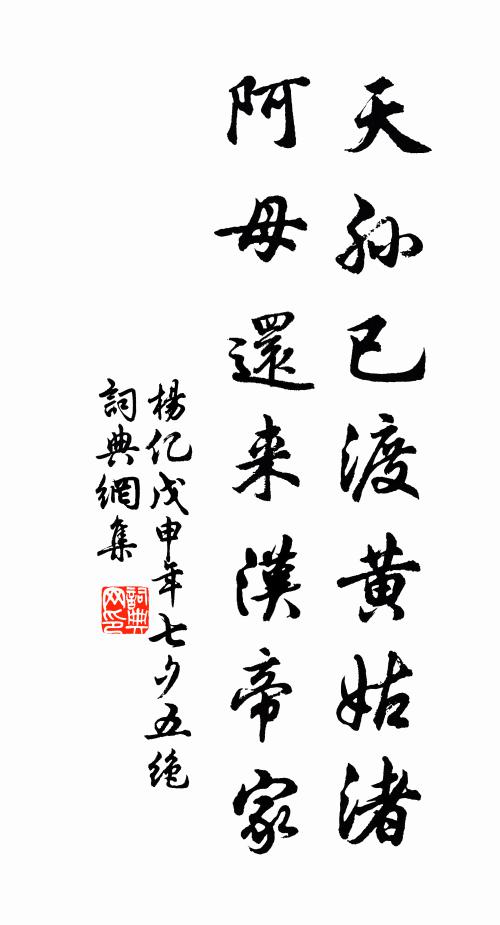 天孙已渡黄姑渚
阿母還来漢帝家
楊亿戊申年七夕五绝
詞典網集
詞典网印